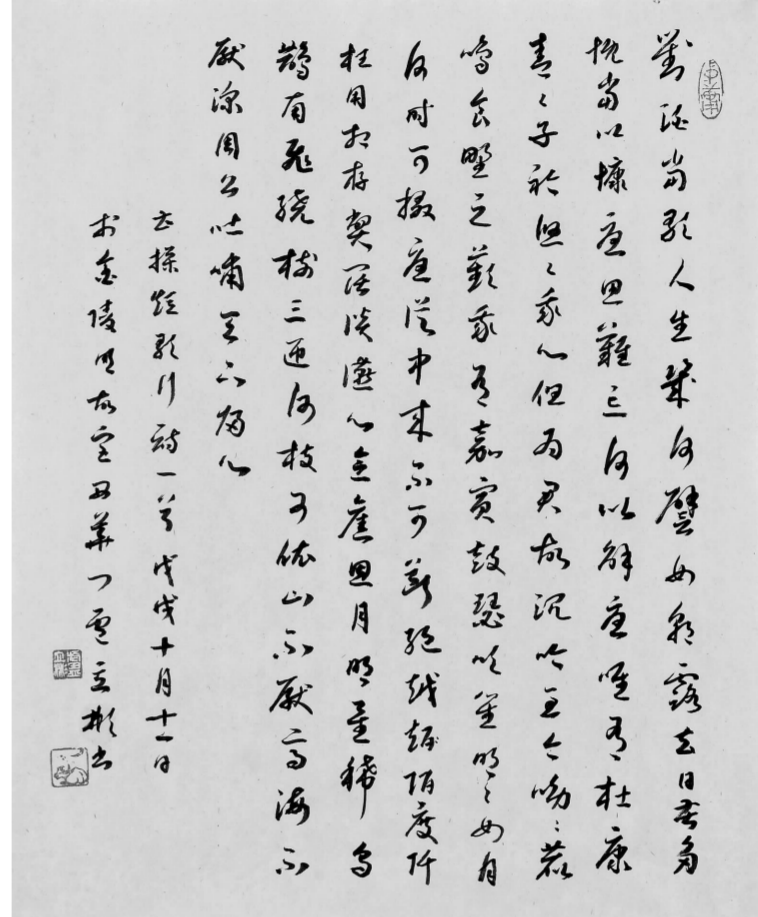 對酒當歌人生幾何譬如朝露去日苦多
慨當以慷憂思難忘何以解憂唯有杜康
青々子衿悠々我心但為君故沉吟至今呦々鹿
鳴食野之蘋我有嘉賓鼓瑟吹笙明々如月
何時可掇憂從中來不可斷絕越陌度阡
枉用相存契闊談讌心念舊恩月明星稀烏
鵲南飛繞樹三匝何枝可依山不厭高海不
厭深周公吐哺天下歸心
操短歌行詩一首戊戌十月十一日
於金陵明故宮西華门立彬书